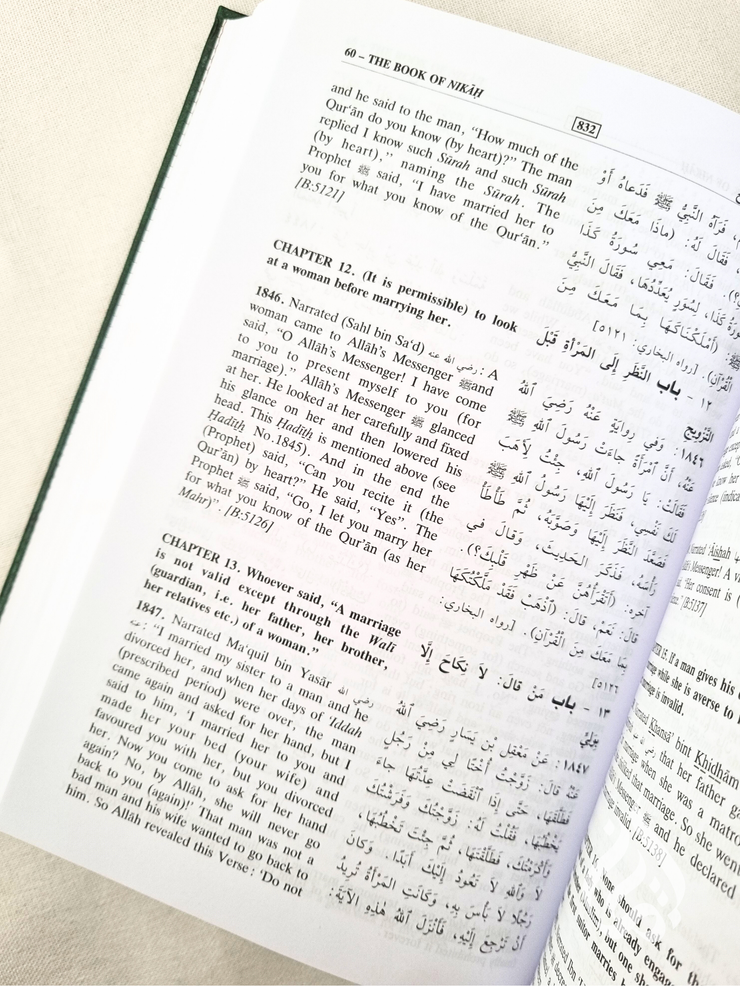 60 – THE BOOK OF NIKĀḤ
832
and he said to the man, “How much of the
Qur’ân do you know (by heart)?” The man
replied I know such Sûrah and such Sûrah
(by heart),” naming the Sûrah. The
Prophet ﷺ said, “I have married her to
you for what you know of the Qur’ân.”
[B:5121]
CHAPTER 12. (It is permissible) to look
at a woman before marrying her.
1846. Narrated (Sahl bin Sa‘d) رضي الله عنه : A
woman came to Allâh’s Messenger ﷺand
said, “O Allâh’s Messenger! I have come
to you to present myself to you (for
marriage).” Allâh’s Messenger ﷺ glanced
at her. He looked at her carefully and fixed
his glance on her and then lowered his
head. This Hadîth is mentioned above (see
Ḥadîth No.1845). And in the end the
(Prophet) said, “Can you recite it (the
Qur’ân) by heart?” He said, “Yes”. The
Prophet ﷺ said, “Go, I let you marry her
for what you know of the Qur’ân (as her
Mahr)”. [B:5126]
CHAPTER 13. Whoever said, “A marriage
is not valid except through the Walî
(guardian, i.e. her father, her brother,
her relatives etc.) of a woman.”
1847. Narrated Ma‘quil bin Yasâr رضي الله
عنه : “I married my sister to a man and he
divorced her, and when her days of ‘Iddah
(prescribed period) were over, the man
came again and asked for her hand, but I
said to him, ‘I married her to you and
made her your bed (your wife) and
favoured you with her, but you divorced
her. Now you come to ask for her hand
again? No, by Allâh, she will never go
back to you (again)!’ That man was not a
bad man and his wife wanted to go back to
him. So Allâh revealed this Verse: ‘Do not
فَدَعَاهُ أَوْ
فَرَآهُ النَّبِيُّ ﷺ
فَقَالَ لَهُ: (مَاذَا مَعَكَ مِنَ
فَقَالَ: مَعِي سُورَةُ كَذَا
كَذَا، لِسُوَرٍ يُعَدِّدُهَا، فَقَالَ النَّبِيُّ
ﷺ: (أَمْلَكْنَاكَهَا بِمَا مَعَكَ مِنَ
الْقُرْآنِ). [رواه البخاري: ٥١٢١]
١٢ - باب النَّظَرِ إِلَى المَرْأَةِ قَبْلَ
التَّزْوِيجِ
١٨٤٦: وَفِي رِوَايَةٍ عَنْهُ رَضِيَ اللهُ
عَنْهُ، أَنَّ امْرَأَةً جَاءَتْ رَسُولَ اللهِ ﷺ
فَقَالَتْ: يَا رَسُولَ اللهِ، جِئْتُ لِأَهَبَ
لَكَ نَفْسِي، فَنَظَرَ إِلَيْهَا رَسُولُ اللهِ ﷺ
فَصَعَّدَ النَّظَرَ إِلَيْهَا وَصَوَّبَهُ، ثُمَّ طَأْطَأَ
رَأْسَهُ، فَذَكَرَ الحَدِيثَ، وَقَالَ في
آخره: (أَتَقْرَأُهُنَّ عَنْ ظَهْرِ قَلْبِكَ؟).
قَالَ: نَعَمْ، قَالَ: (اذْهَبْ فَقَدْ مَلَّكْتُكَهَا
بِمَا مَعَكَ مِنَ الْقُرْآنِ). [رواه البخاري:
٥١٢٦]
١٣ - باب مَنْ قَالَ: لاَ نِكَاحَ إِلَّا
بِوَلِيٍّ
١٨٤٧: عَنْ مَعْقِلِ بْنِ يَسَارٍ رَضِيَ اللهُ
عَنْهُ قَالَ: زَوَّجْتُ أُخْتًا لِي مِنْ رَجُلٍ
فَطَلَّقَهَا، حَتَّى إِذَا انْقَضَتْ عِدَّتُهَا جَاءَ
يَخْطُبُهَا، فَقُلْتُ لَهُ: زَوَّجْتُكَ وَفَرَشْتُكَ
وَأَكْرَمْتُكَ، فَطَلَّقْتَهَا، ثُمَّ جِئْتَ تَخْطُبُهَا،
لاَ وَاللهِ لاَ تَعُودُ إِلَيْكَ أَبَدًا. وَكَانَ
رَجُلًا لاَ بَأْسَ بِهِ، وَكَانَتِ المَرْأَةُ تُرِيدُ
أَنْ تَرْجِعَ إِلَيْهِ، فَأَنْزَلَ اللهُ هٰذِهِ الآيَةَ:
Narrated ‘Âishah
Messenger! A
“Her consent is
[B:5137]
15. If a man gives his
while she is averse to
marriage is invalid.
Khansâ’ bint Khidhâm
that her father
marriage when she was a matron
that marriage. So she went
ﷺ and he declared
invalid. [B:5138]
None should ask for
who is already engaged
but one
marries